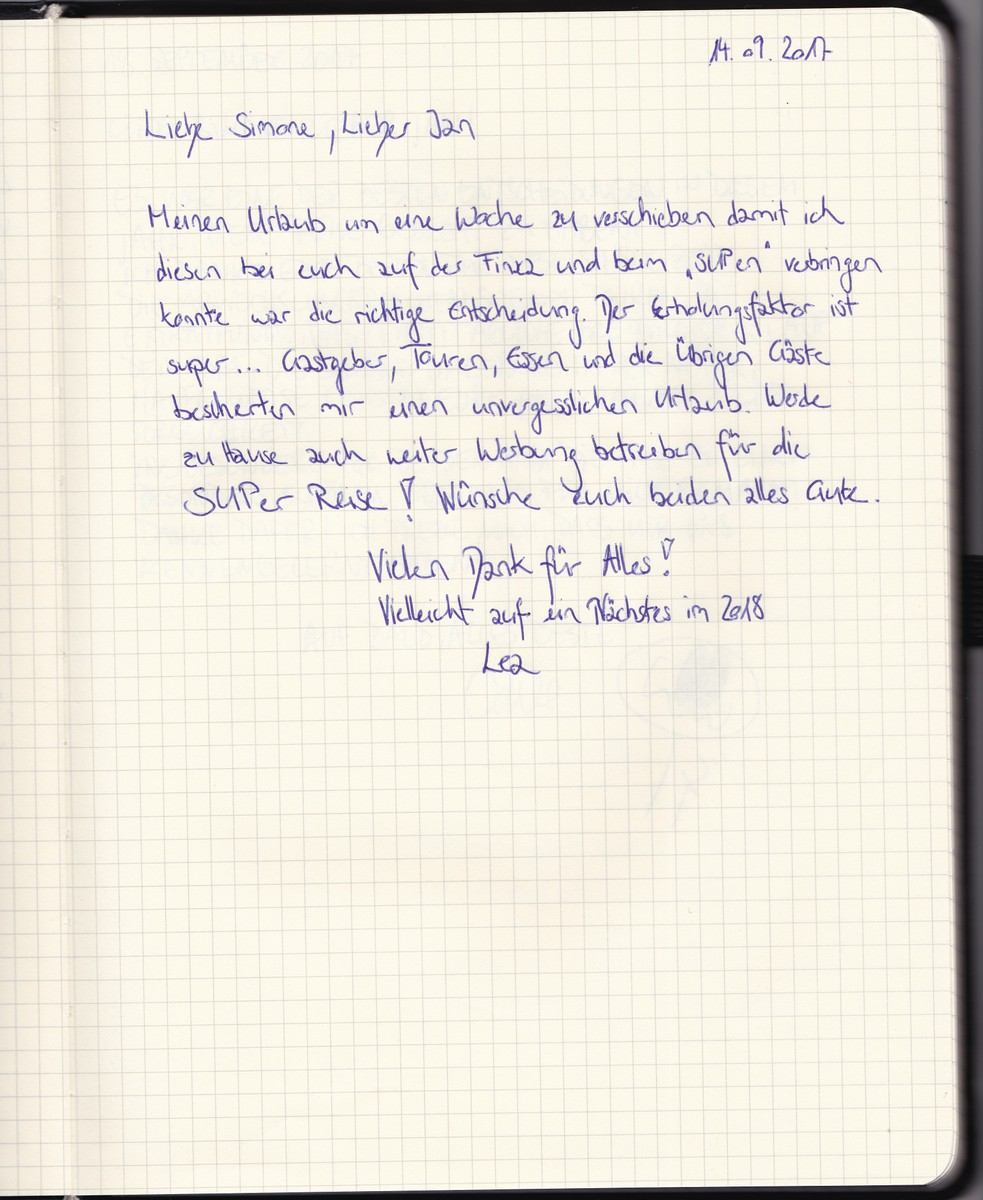 14.09.2017
Liebe Simone, Lieber Jan
Meinen Urlaub um eine Woche zu verschieben damit ich
diesen bei euch auf der Finca und beim „SUPen“ verbringen
konnte war die richtige Entscheidung. Der Erholungsfaktor ist
super... Gastgeber, Touren, Essen und die Übrigen Gäste
bescherten mir einen unvergesslichen Urlaub. Werde
zu Hause auch weiter Werbung betreiben für die
SUPer Reise! Wünsche Euch beiden alles Gute.
Vielen Dank für Alles!
Vielleicht auf ein Nächstes im 2018
Lea